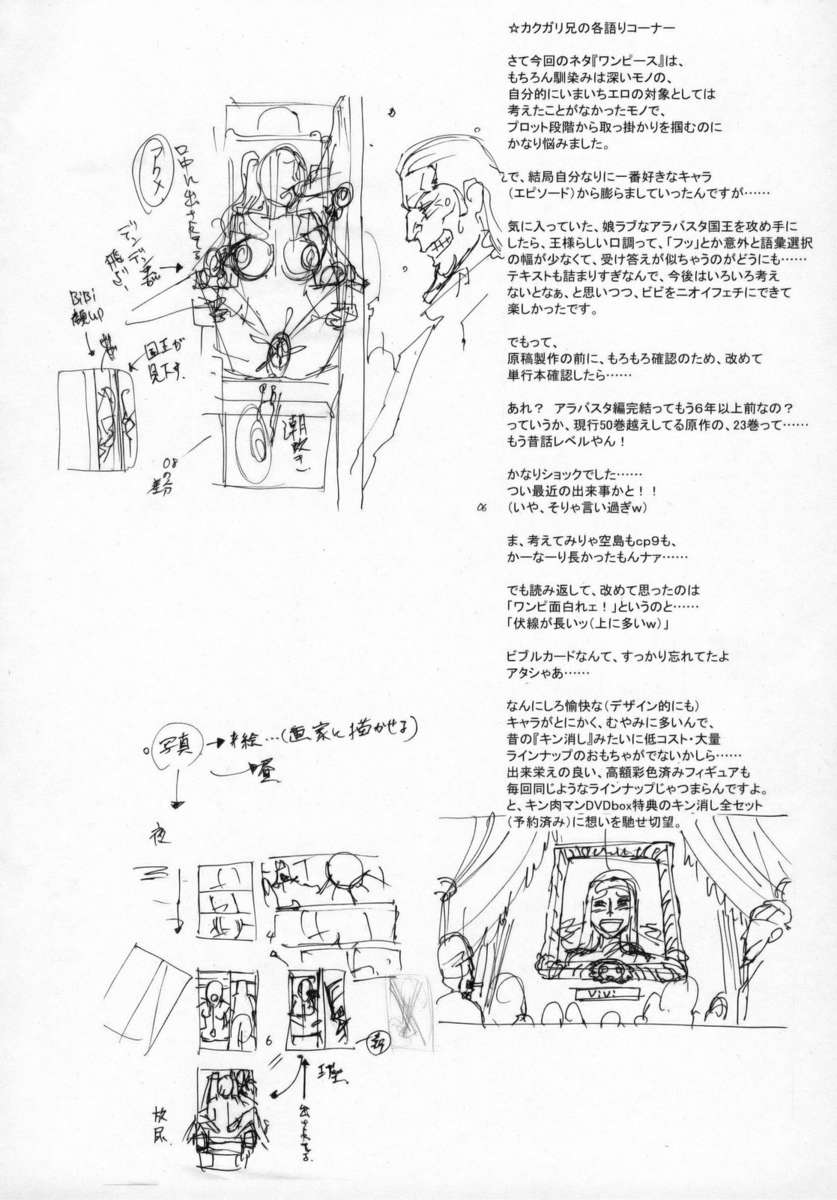 ☆カクガリ兄の各語りコーナー
さて今回のネタ『ワンピース』は、
もちろん馴染みは深いモノの、
自分的にいまいちエロの対象としては
考えたことがなかったモノで、
プロット段階から取っ掛かりを掴むのに
かなり悩みました。
で、結局自分なりに一番好きなキャラ
(エピソード)から膨らましていったんですが……
気に入っていた、娘ラブなアラバスタ国王を攻め手に
したら、王様らしい口調って、「フッ」とか意外と語彙選択
の幅が少なくて、受け答えが似ちゃうのがどうにも……
テキストも詰まりすぎなんで、今後はいろいろ考え
ないとなぁ、と思いつつ、ビビをニオイフェチにできて
楽しかったです。
でもって、
原稿製作の前に、もろもろ確認のため、改めて
単行本確認したら……
あれ? アラバスタ編完結ってもう6年以上前なの?
っていうか、現行50巻越えしてる原作の、23巻って……
もう昔話レベルやん!
かなりショックでした……
つい最近の出来事かと!!
(いや、そりゃ言い過ぎw)
ま、考えてみりゃ空島もcp9も、
かーなーり長かったもんナァ……
でも読み返して、改めて思ったのは
「ワンピ面白れェ!」というのと……
「伏線が長いッ(上に多いw)」
ビブルカードなんて、すっかり忘れてたよ
アタシゃあ……
なんにしろ愉快な(デザイン的にも)
キャラがとにかく、むやみに多いんで、
昔の『キン消し』みたいに低コスト・大量
ラインナップのおもちゃがでないかしら……
出来栄えの良い、高額彩色済みフィギュアも
毎回同じようなラインナップじゃつまらんですよ。
と、キン肉マンDVDbox特典のキン消し全セット
(予約済み)に想いを馳せ切望。
口中に出されてる
アクメ
BiBi
顔up
国王が
見下す
潮吹き
08
の分
06
写真→絵…(画家に描かせる)
昼
夜
4
6
出されてる
放尿
ViVi